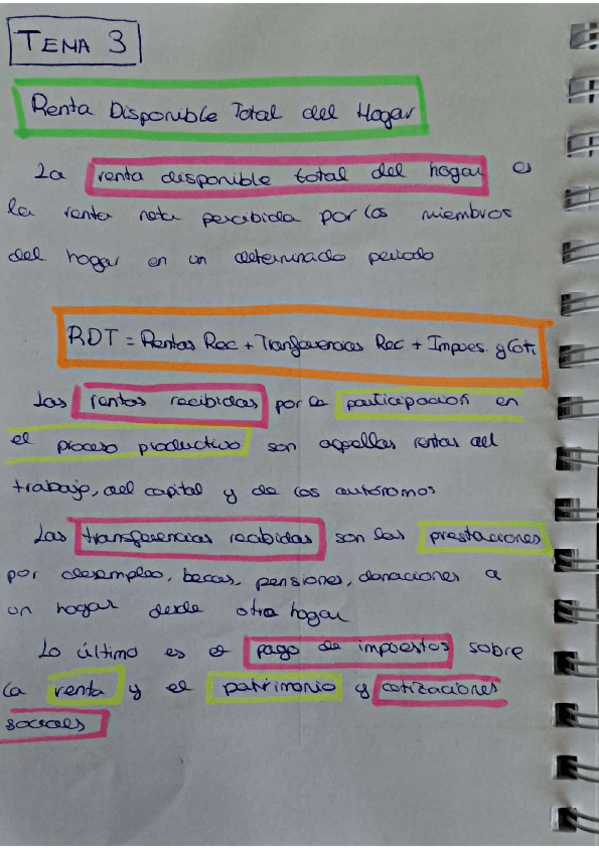 TEMA 3
Renta Disponible Total del Hogar
La renta disponible total del hogar es
la renta neta percibida por los miembros
del hogar en un determinado periodo
RDT = Rentas Rec + Transferencias Rec + Impues. y Coti
Las rentas recibidas por la participación en
el proceso productivo son aquellas rentas del
trabajo, del capital y de los autónomos
Las transferencias recibidas son las prestaciones
por desempleo, becas, pensiones, donaciones a
un hogar desde otro hogar
Lo último es el pago de impuestos sobre
la renta y el patrimonio y cotizaciones
sociales